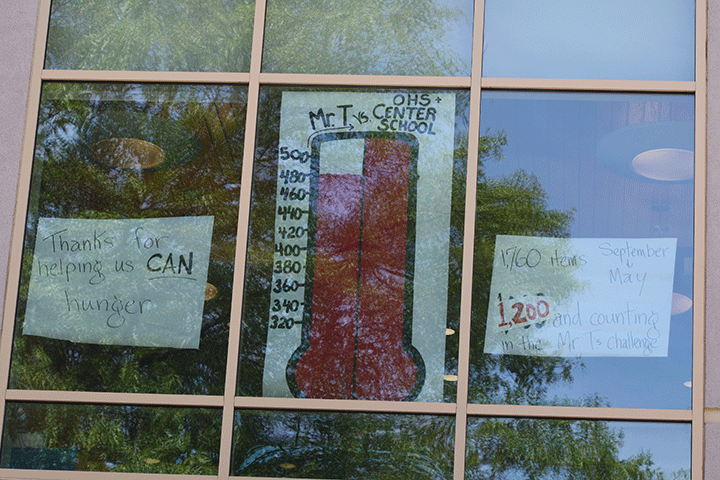 Thanks for
helping us CAN
hunger
OHS +
Mr. T vs. CENTER
SCHOOL
500
480
460
440
420
400
380
360
340
320
1,760 items September
May
1,200 and counting
in the Mr Ts challenge